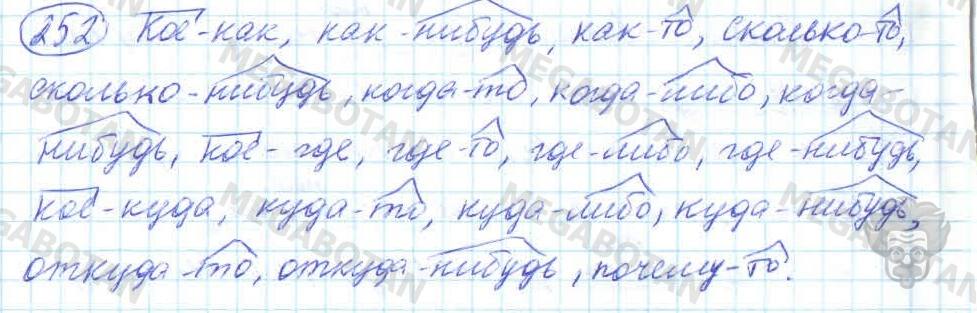 252 Кое-как, как-нибудь, как-то, сколько-то,
сколько-нибудь, когда-то, когда-либо, когда-
нибудь, кое-где, где-то, где-либо, где-нибудь,
кое-куда, куда-то, куда-либо, куда-нибудь,
откуда-то, откуда-нибудь, почему-то.
MEGABOTAN